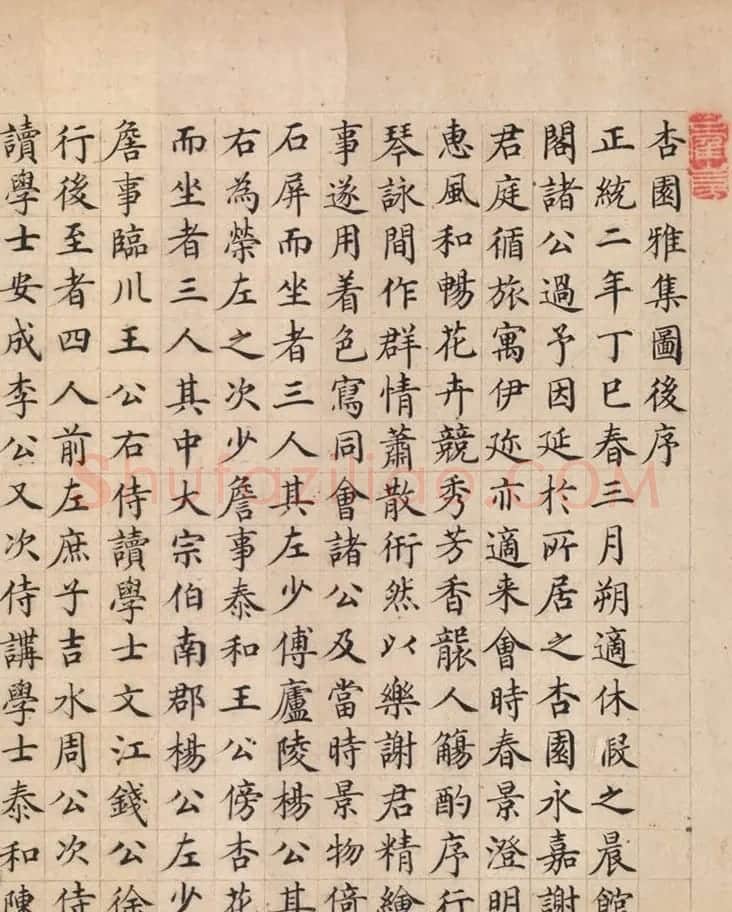 杏園雅集圖後序
正統二年丁巳春三月朔適休假之晨館
閣諸公過予因延於所居之杏園永嘉謝
君庭循旅寓伊迩亦適来會時春景澄明
惠風和暢花卉競秀芳香襲人觴酌序行
琴詠間作群情蕭散衎然以樂謝君精繪
事遂用着色寫同會諸公及當時景物倚
石屏而坐者三人其左少傅廬陵楊公其
右為榮左之次少詹事泰和王公傍杏花
而坐者三人其中大宗伯南郡楊公左少
詹事臨川王公右侍讀學士文江錢公徐
行後至者四人前左庶子吉水周公次侍
讀學士安成李公又次侍講學士泰和陳
Shufaziliao.COM